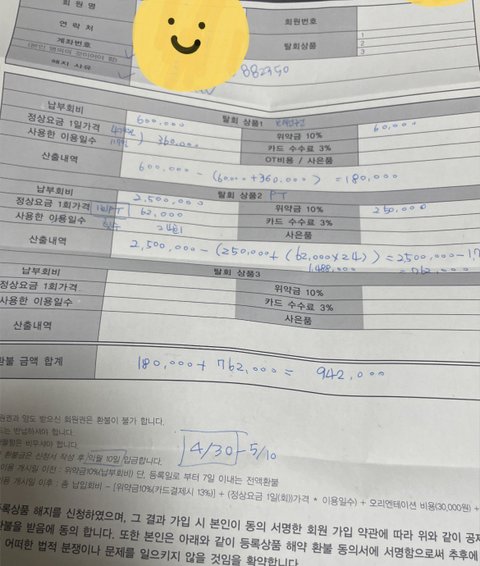 회원명
회원번호
연락처
계좌번호
탈회상품
1
2
3
해지 사유
882350
납부회비 600.000 탈회 상품1
정상요금 1일가격 위약금 10% 60,000
사용한 이용일수 360.000 카드 수수료 3%
OT비용 / 사은품
산출내역 600.000 - (60000 + 360.000) = 180,000
납부회비 2,500,000 탈회 상품2 PT
정상요금 1회가격 62,000 위약금 10% 250,000
사용한 이용일수 24회 카드 수수료 3%
사은품
산출내역 2,500,000 - (250,000 + (62,000 x 24)) = 2,500,000 - 1,7
1,488,000 = 762,000
납부회비 탈회 상품3
정상요금 1회가격 위약금 10%
사용한 이용일수 카드 수수료 3%
산출내역 사은품
환불 금액 합계 180,000 + 762,000 = 942,000
회원권과 양도 받으신 회원권은 환불이 불가 합니다.
반납하셔야 합니다.
비우셔야 합니다.
환불금은 신청서 작성 후 익월 10일 입금합니다.
4/30 - 5/10
이용 개시일 이전 : 위약금10%(납부회비) 단, 등록일로 부터 7일 이내는 전액환불
이용 개시일 이후 : 총 납입회비 - [위약금10%(카드결제시 13%)] + (정상요금 1일(회)가격 * 이용일수) + 오리엔테이션 비용(30,000원) +
등록상품 해지를 신청하였으며, 그 결과 가입 시 본인이 동의 서명한 회원 가입 약관에 따라 위와 같이 공제
환불을 받음에 동의 합니다. 또한 본인은 아래와 같이 등록상품 해약 환불 동의서에 서명함으로써 추후에
어떠한 법적 분쟁이나 문제를 일으키지 않을 것임을 확약합니다.